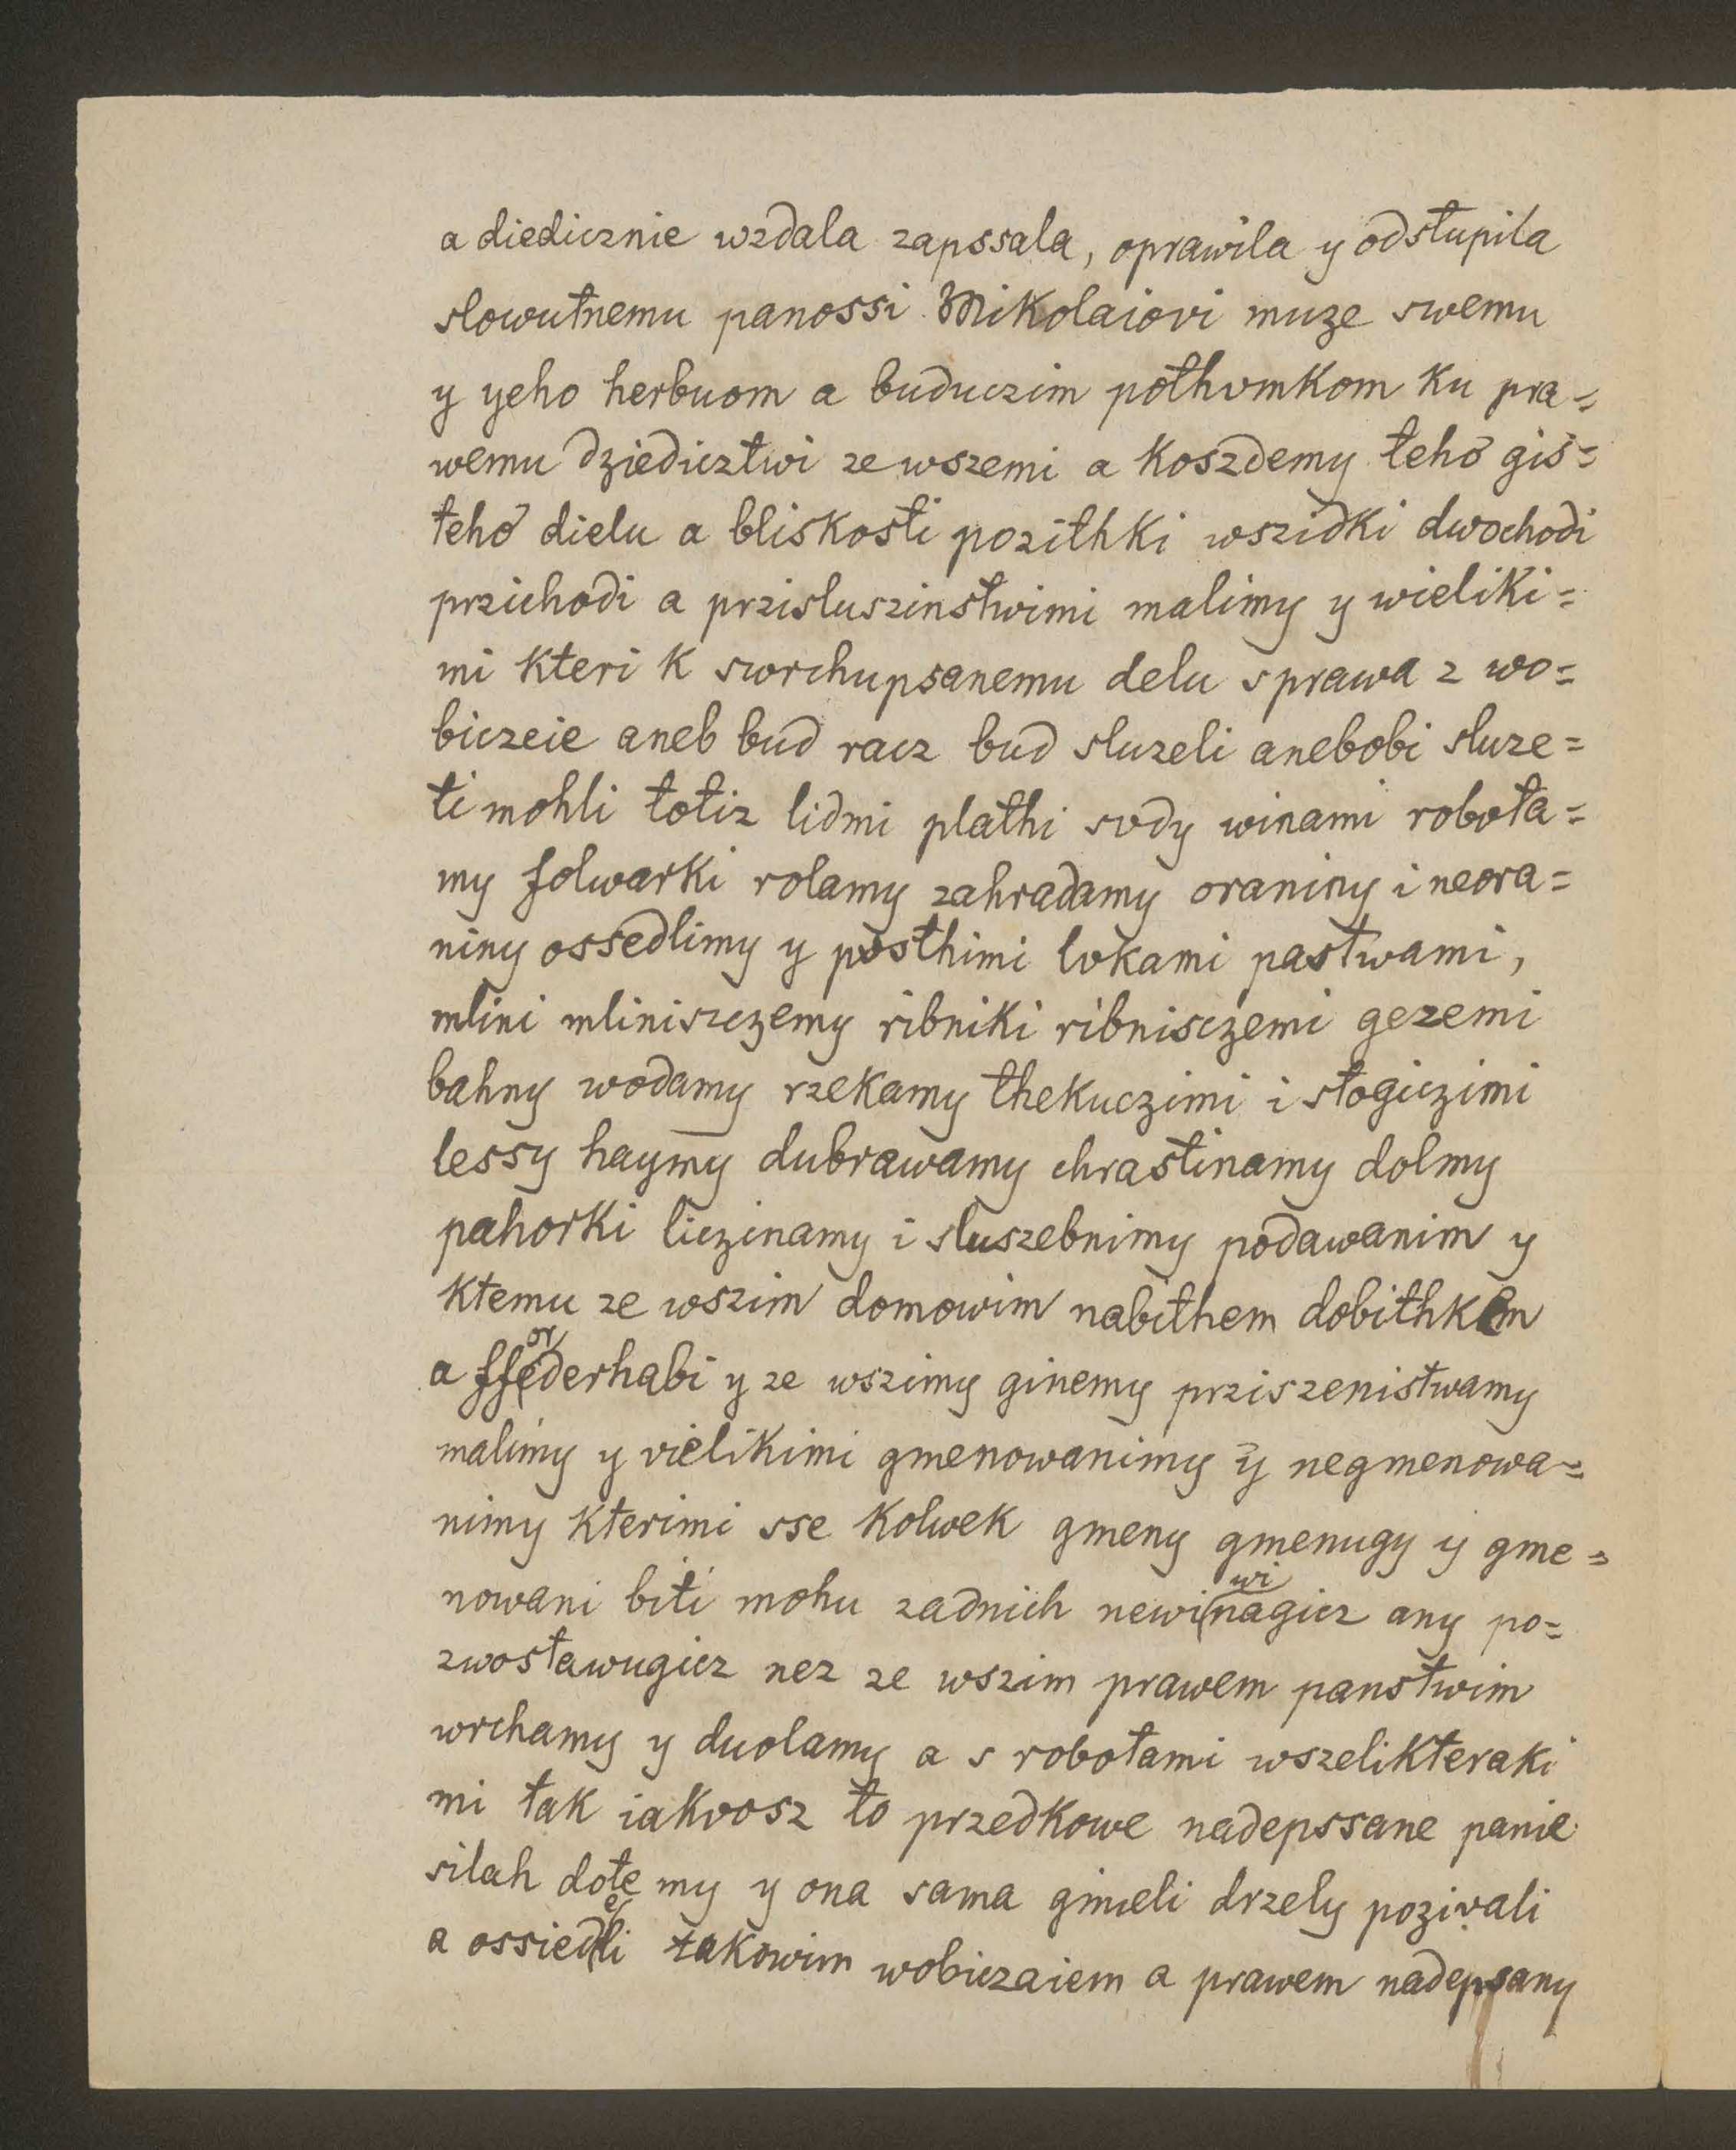 a diedicznie wzdala zapssala, oprawila y odstupila
slowutnemu panossi Mikolaiovi muze swemu
y yeho herbuom a buduczim pothvmkom ku pra=
wemu dziedicztwi ze wszemi a koszdemy teho gis=
teho dielu a bliskosti pozithki wszidki dwochodi
przichodi a przisluszinstwimi malimy y wieliki=
mi kteri k swrchupsanemu delu sprawa z wo=
biczeie aneb bud racz bud sluzeli anebobi sluze=
ti mohli totiz lidmi plathi svdy winami robota=
my folwarki rolamy zahradamy oraniny i neora=
niny ossedlimy y posthimi lvkami pastwami,
mlini mliniszczemy ribniki ribnisczemi gezemi
bahny wodamy rzekamy thekuczimi i stogiczimi
lessy haymy dubrawamy chrastinamy dolmy
pahorki liczinamy i sluszebnimy podawanim y
ktemu ze wszim domowim nabithem dobithkem
a ffederhabi y ze wszimy ginemy prziszenistwamy
malimy y vielikimi gmenowanimy y negmenowa=
nimy kterimi sse kolwek gmeny gmenugy y gme=
nowani biti mohu zadnich newinagicz any po=
zwostawugicz nez ze wszim prawem panstwim
wrchamy y duolamy a s robotami wszelikteraki
mi tak iakvosz to przedkowe nadepssane panie
silah dote my y ona sama gmeli drzely pozivali
a ossiedli takowim wobiczaiem a prawem nadepsany